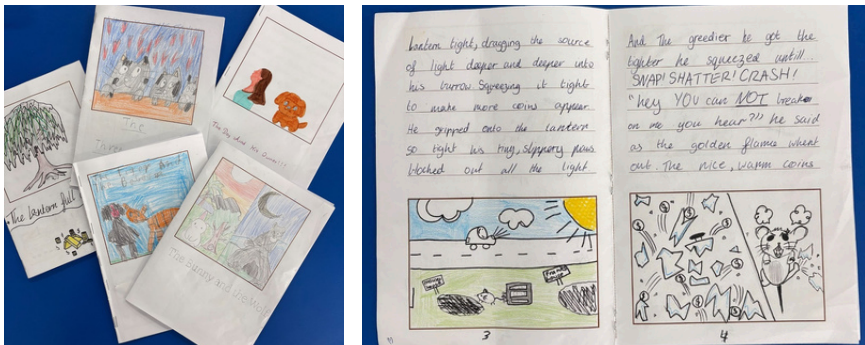 The
Three
The Dog Who
The lantern full
The Bunny and the Wolf
lantern tight, dragging the source
of light deeper and deeper into
his burrow. Squeezing it tight
to make more coins appear
He gripped onto the lantern
so tight his tiny, slippery paws
blocked out all the light
3
And The greedier he got the
tighter he squeezed untill...
SNAP! SHATTER! CRASH!
"hey YOU can NOT break
on me you hear?!" he said
as the golden flame whent
out. The nice, warm coins
4